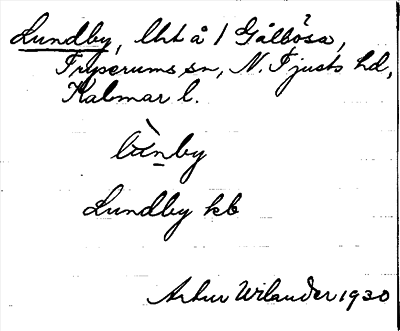 Lundby, lht å 1 Gålbösa,
Tryserums sn, N. Tjusts hd,
Kalmar l.
Lundby kb
Arthur Wilander 1930